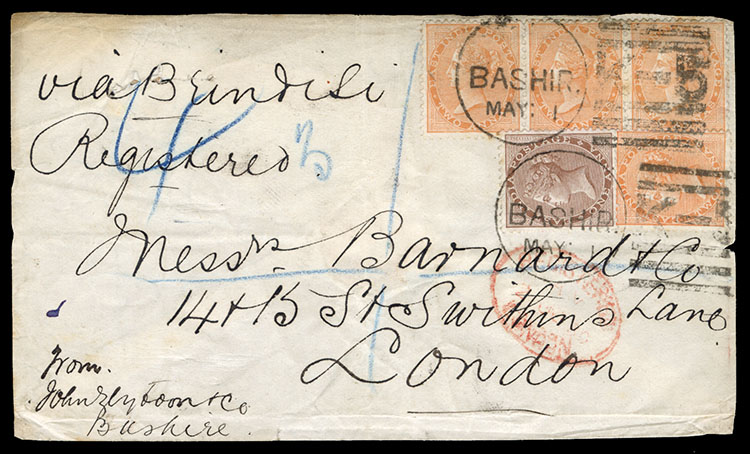 via Brindisi
Registered
BASHIR.
MAY. 1
BASHIR.
MAY. 1
POSTAGE
Messrs Barnard & Co
14 & 15 St Swithins Lane
London
From.
John & Co
Bushire.